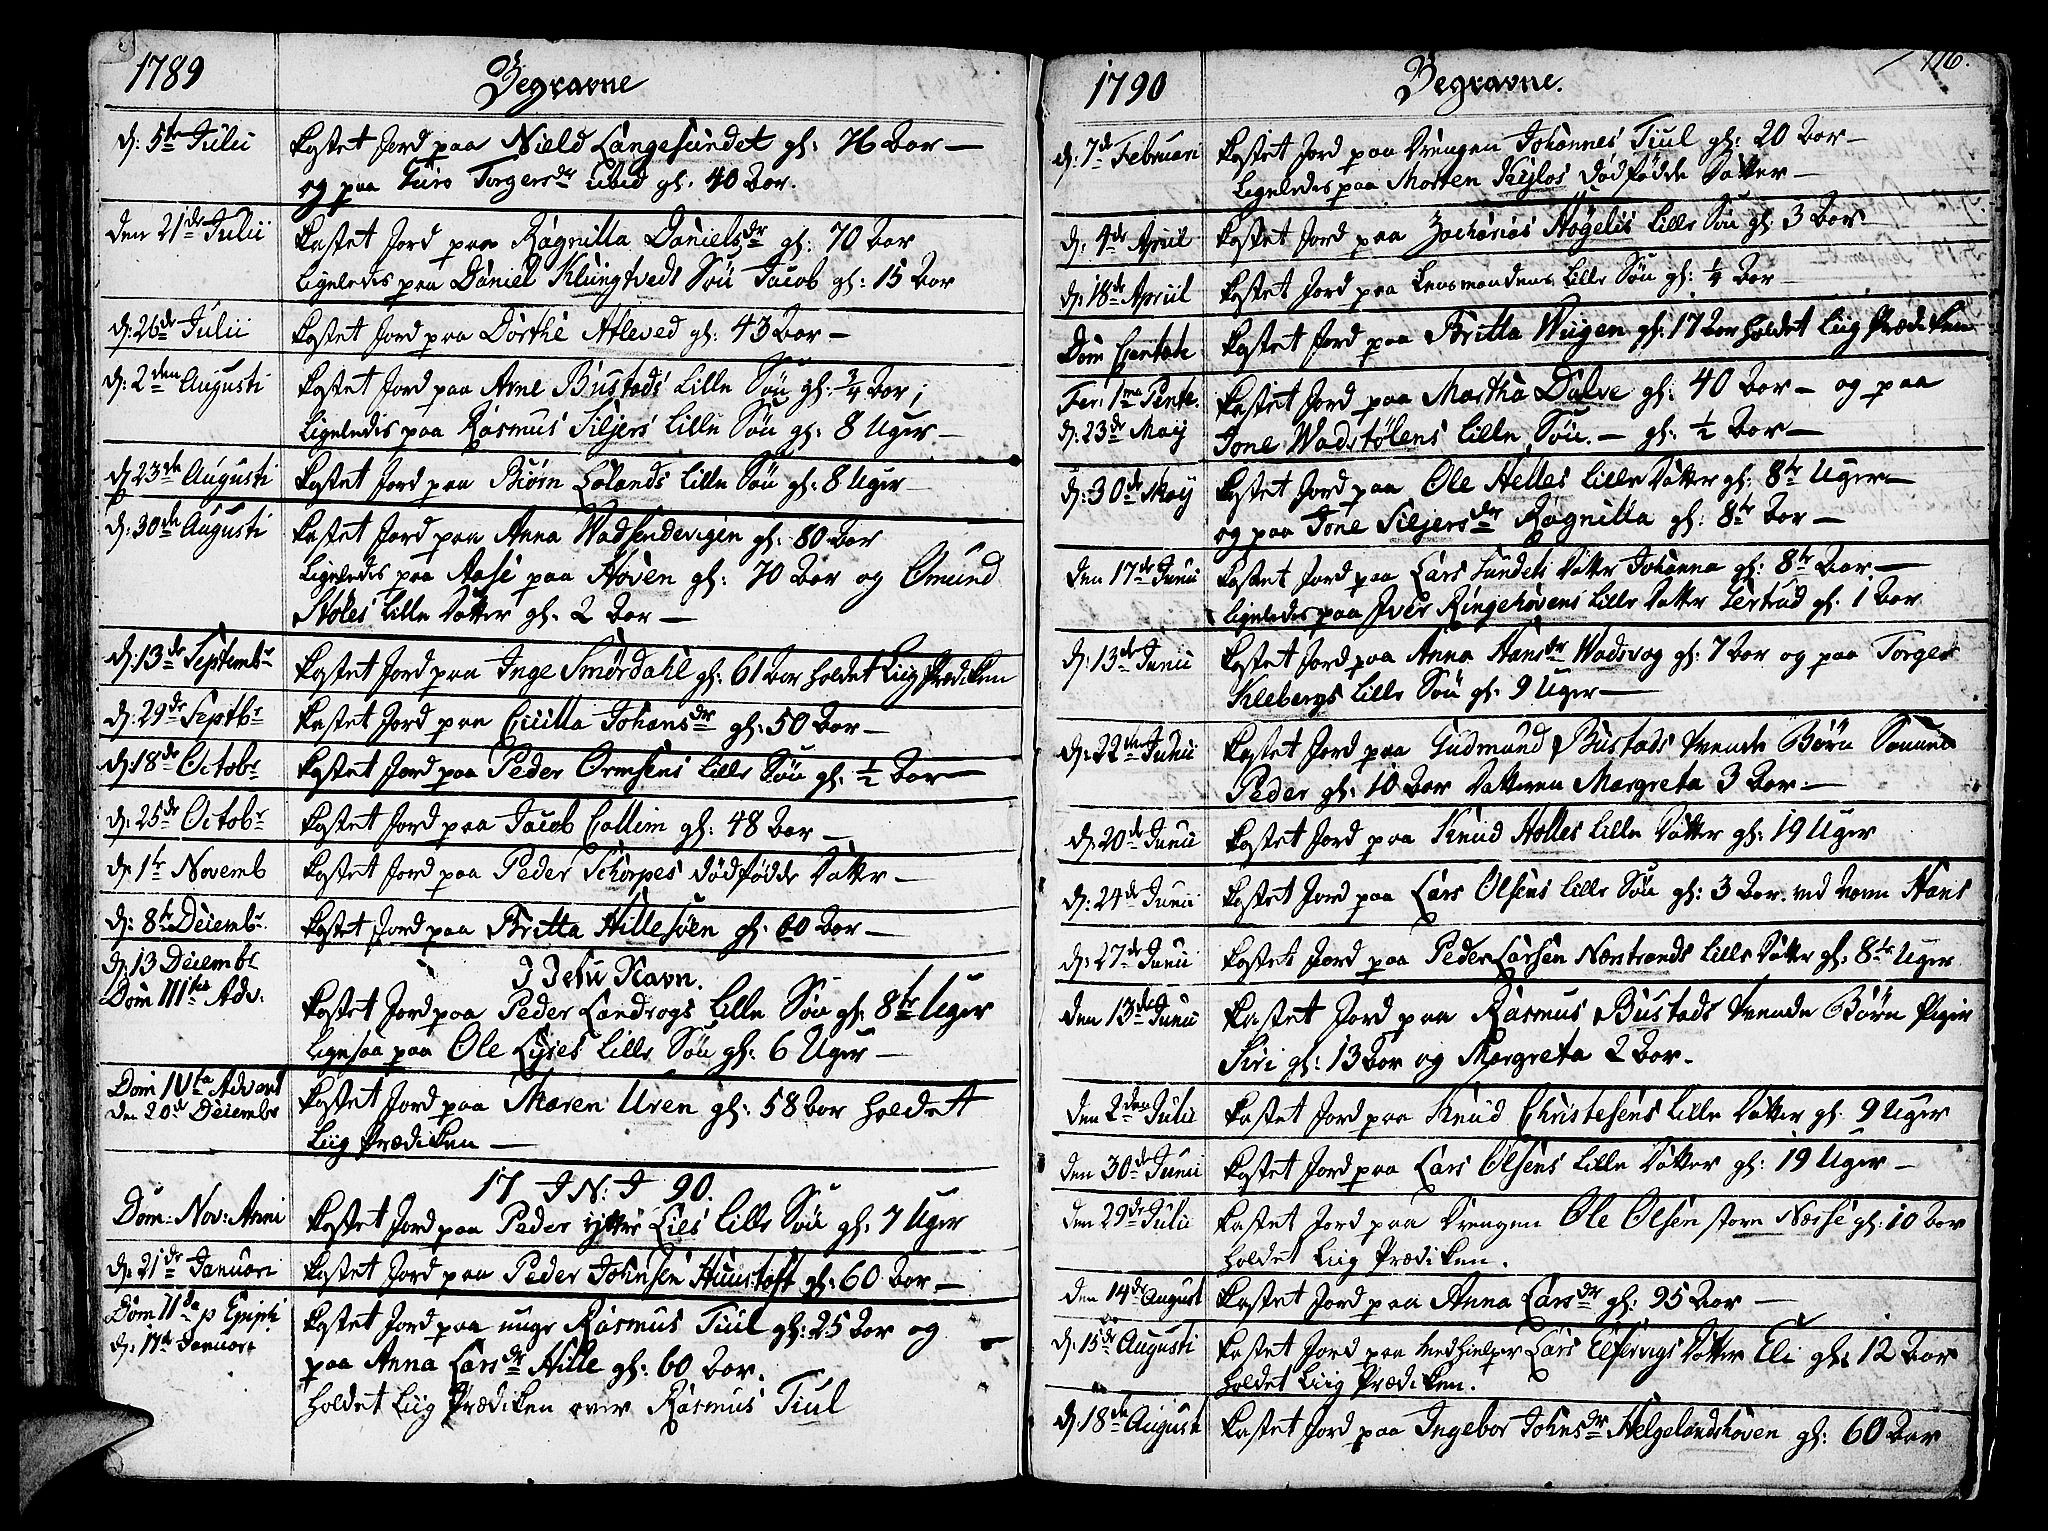 1789
Begravne
d: 5te Julii
Kastet Jord paa Nield Langesundet gl: 76 Aar —
og paa Guro Torgersdr ubid gl: 40 Aar.
den 21de Julii
Kastet Jord paa Ragnilla Danielsdr gl: 70 Aar
Ligeledis paa Daniel Klungtvedt Søn Jacob gl: 15 Aar
d: 26de Julii
Kastet Jord paa Dorthe Atleved gl: 43 Aar —
d: 2den Augusti
Kastet Jord paa Arne Bustads Lille Søn gl: 3/4 Aar;
Ligeledis paa Rasmus Siljers Lille Søn gl: 8 Uger —
d: 23de Augusti
Kastet Jord paa Biørn Lølands Lille Søn gl: 8 Uger —
d: 30de Augusti
Kastet Jord paa Anna Wadsendevigen gl: 80 Aar
Ligeledis paa Aase paa Høven gl: 70 Aar og Omund
Støles Lille Datter gl: 2 Aar —
d: 13de Septembr
Kastet Jord paa Inge Smørdahl gl: 61 Aar holdet Liig Prædiken
d: 29de Septbr
Kastet Jord paa Cicilla Johansdr gl: 50 Aar —
d: 18de Octobr
Kastet Jord paa Peder Ormsens Lille Søn gl: 1/2 Aar —
d: 25de Octobr
Kastet Jord paa Jacob Hallim gl: 48 Aar —
d: 1te Novemb
Kastet Jord paa Peder Schorpes dødfødde Datter —
d: 8te Decembr
Kastet Jord paa Britta Hillesøen gl: 60 Aar —
d: 13 Decembr
Dom IIItia Adv:
I Jesu Navn.
Kastet Jord paa Peder Landrogs Lille Søn gl: 8te Uger
Ligesaa paa Ole Lyses Lille Søn gl: 6 Uger —
Dom IVta Advent
den 20de Decembr
Kastet Jord paa Maren Uren gl: 58 Aar holdet
Liig Prædiken —
17 I N: J 90.
Dom: Nov: Anni
Kastet Jord paa Peder Yttre Lies Lille Søn gl: 7 Uger
d: 21de Januari
Kastet Jord paa Peder Johnsen Huustoft gl: 60 Aar —
Dom IIda p Epiph
d: 17de Januari
Kastet Jord paa unge Rasmus Tiul gl: 25 Aar og
paa Anna Larsdr Hille gl: 60 Aar.
holdet Liig Prædiken over Rasmus Tiul
116.
1790
Begravne.
d: 7de Februari
Kastet Jord paa Drengen Johannes Tiul gl: 20 Aar —
Ligeledis paa Morten dødfødde Datter —
d: 4de Apriil
Kastet Jord paa Zacharias Høgelis Lille Søn gl: 3 Aar
d: 18de Apriil
Kastet Jord paa Lensmandens Lille Søn gl: 1/4 Aar —
Dom Cantate
Kastet Jord paa Britta Wiigen gl: 17 Aar holdet Liig Prædiken
Fer: 1ma Pente.
d: 23de Maij
Kastet Jord paa Martha Dalve gl: 40 Aar — og paa
Jone Wadstølens Lille Søn. — gl: 1/2 Aar —
d: 30de Maij
Kastet Jord paa Ole Helles Lille Datter gl: 8te Uger —
og paa Jone Siljersdr Ragnilla gl: 8te Aar —
den 17de Junii
Kastet Jord paa Lars Sundets Datter Johanna gl: 8te Aar —
Ligeledis paa Iver Ringehovens Lille Datter Gertrud gl: 1 Aar
d: 13de Junii
Kastet Jord paa Anna Hansdr Wadsvog gl: 7 Aar og paa Torger
Klebergs Lille Søn gl: 9 Uger —
d: 22den Junii
Kastet Jord paa Gudmund Bustads tvende Børn Sønnen
Peder gl: 10 Aar Datteren Margreta 3 Aar —
d: 20de Junii
Kastet Jord paa Knud Holles Lille Datter gl: 19 Uger
d: 24de Junii
Kastet Jord paa Lars Olsens Lille Søn gl: 3 Aar. ved Navn Hans
d: 27de Junii
Kastet Jord paa Peder Larsen Nærstrands Lille Datter gl: 8te Uger
den 13de Junii
Kastet Jord paa Rasmus Bustads tvende Børn Piger
Siri gl: 13 Aar og Margreta 2 Aar.
den 2den Julii
Kastet Jord paa Knud Christesens Lille Datter gl: 9 Uger
den 30de Junii
Kastet Jord paa Lars Olsens Lille Datter gl: 19 Uger —
den 29de Julii
Kastet Jord paa Drengen Ole Olsen store Næsse gl: 10 Aar
holdet Liig Prædiken.
den 14de August
Kastet Jord paa Anna Larsdr gl: 95 Aar —
d: 15de Augusti
Kastet Jord paa Medhielper Lars Elfervigs Datter Eli gl: 12 Aar
holdet Liig Prædiken.
d: 18de August
Kastet Jord paa Ingebor Johnsdr Helgelandshoven gl: 60 Aar